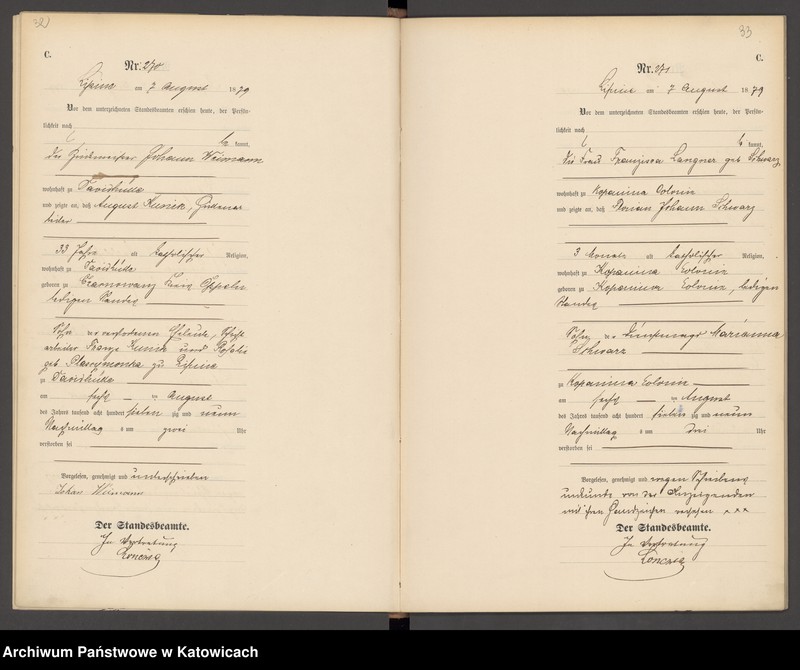 32
C.
Nr. 270
Lipine am 7 August 1879
Vor dem unterzeichneten Standesbeamten erschien heute, der Persön-
lichkeit nach
kannt,
der Johann Weimann
wohnhaft zu Davidhütte
und zeigte an, daß August Kunick,
33 Jahre alt katholischer Religion,
wohnhaft zu Davidhütte
geboren zu Czarnowanz Kreis Oppeln
ledigen Standes
Sohn der verstorbenen Eheleute,
Kunick und Rosalie
geb zu Lipine
zu Davidhütte
am sechs ten August
des Jahres tausend acht hundert sieben zig und neun
Nachmittag s um zwei Uhr
verstorben sei
Vorgelesen, genehmigt und unterschrieben
Johan Weimann
Der Standesbeamte.
In Vertretung
33
C.
Nr. 271
Lipine am 7 August 1879
Vor dem unterzeichneten Standesbeamten erschien heute, der Persön-
lichkeit nach
kannt,
die Frau Franziska Langner geb Schwarz,
wohnhaft zu Kopanina Colonie
und zeigte an, daß Florian Johann Schwarz
3 Monate alt katholischer Religion,
wohnhaft zu Kopanina Colonie
geboren zu Kopanina Colonie, ledigen
Standes
Sohn der Dienstmagd Marianna
Schwarz
zu Kopanina Colonie
am sechs ten August
des Jahres tausend acht hundert sieben zig und neun
Nachmittag s um drei Uhr
verstorben sei
Vorgelesen, genehmigt und wegen Schreibens
unkunde von der Anzeigenden
mit ihren Handzeichen versehen × × ×
Der Standesbeamte.
In Vertretung
Archiwum Państwowe w Katowicach